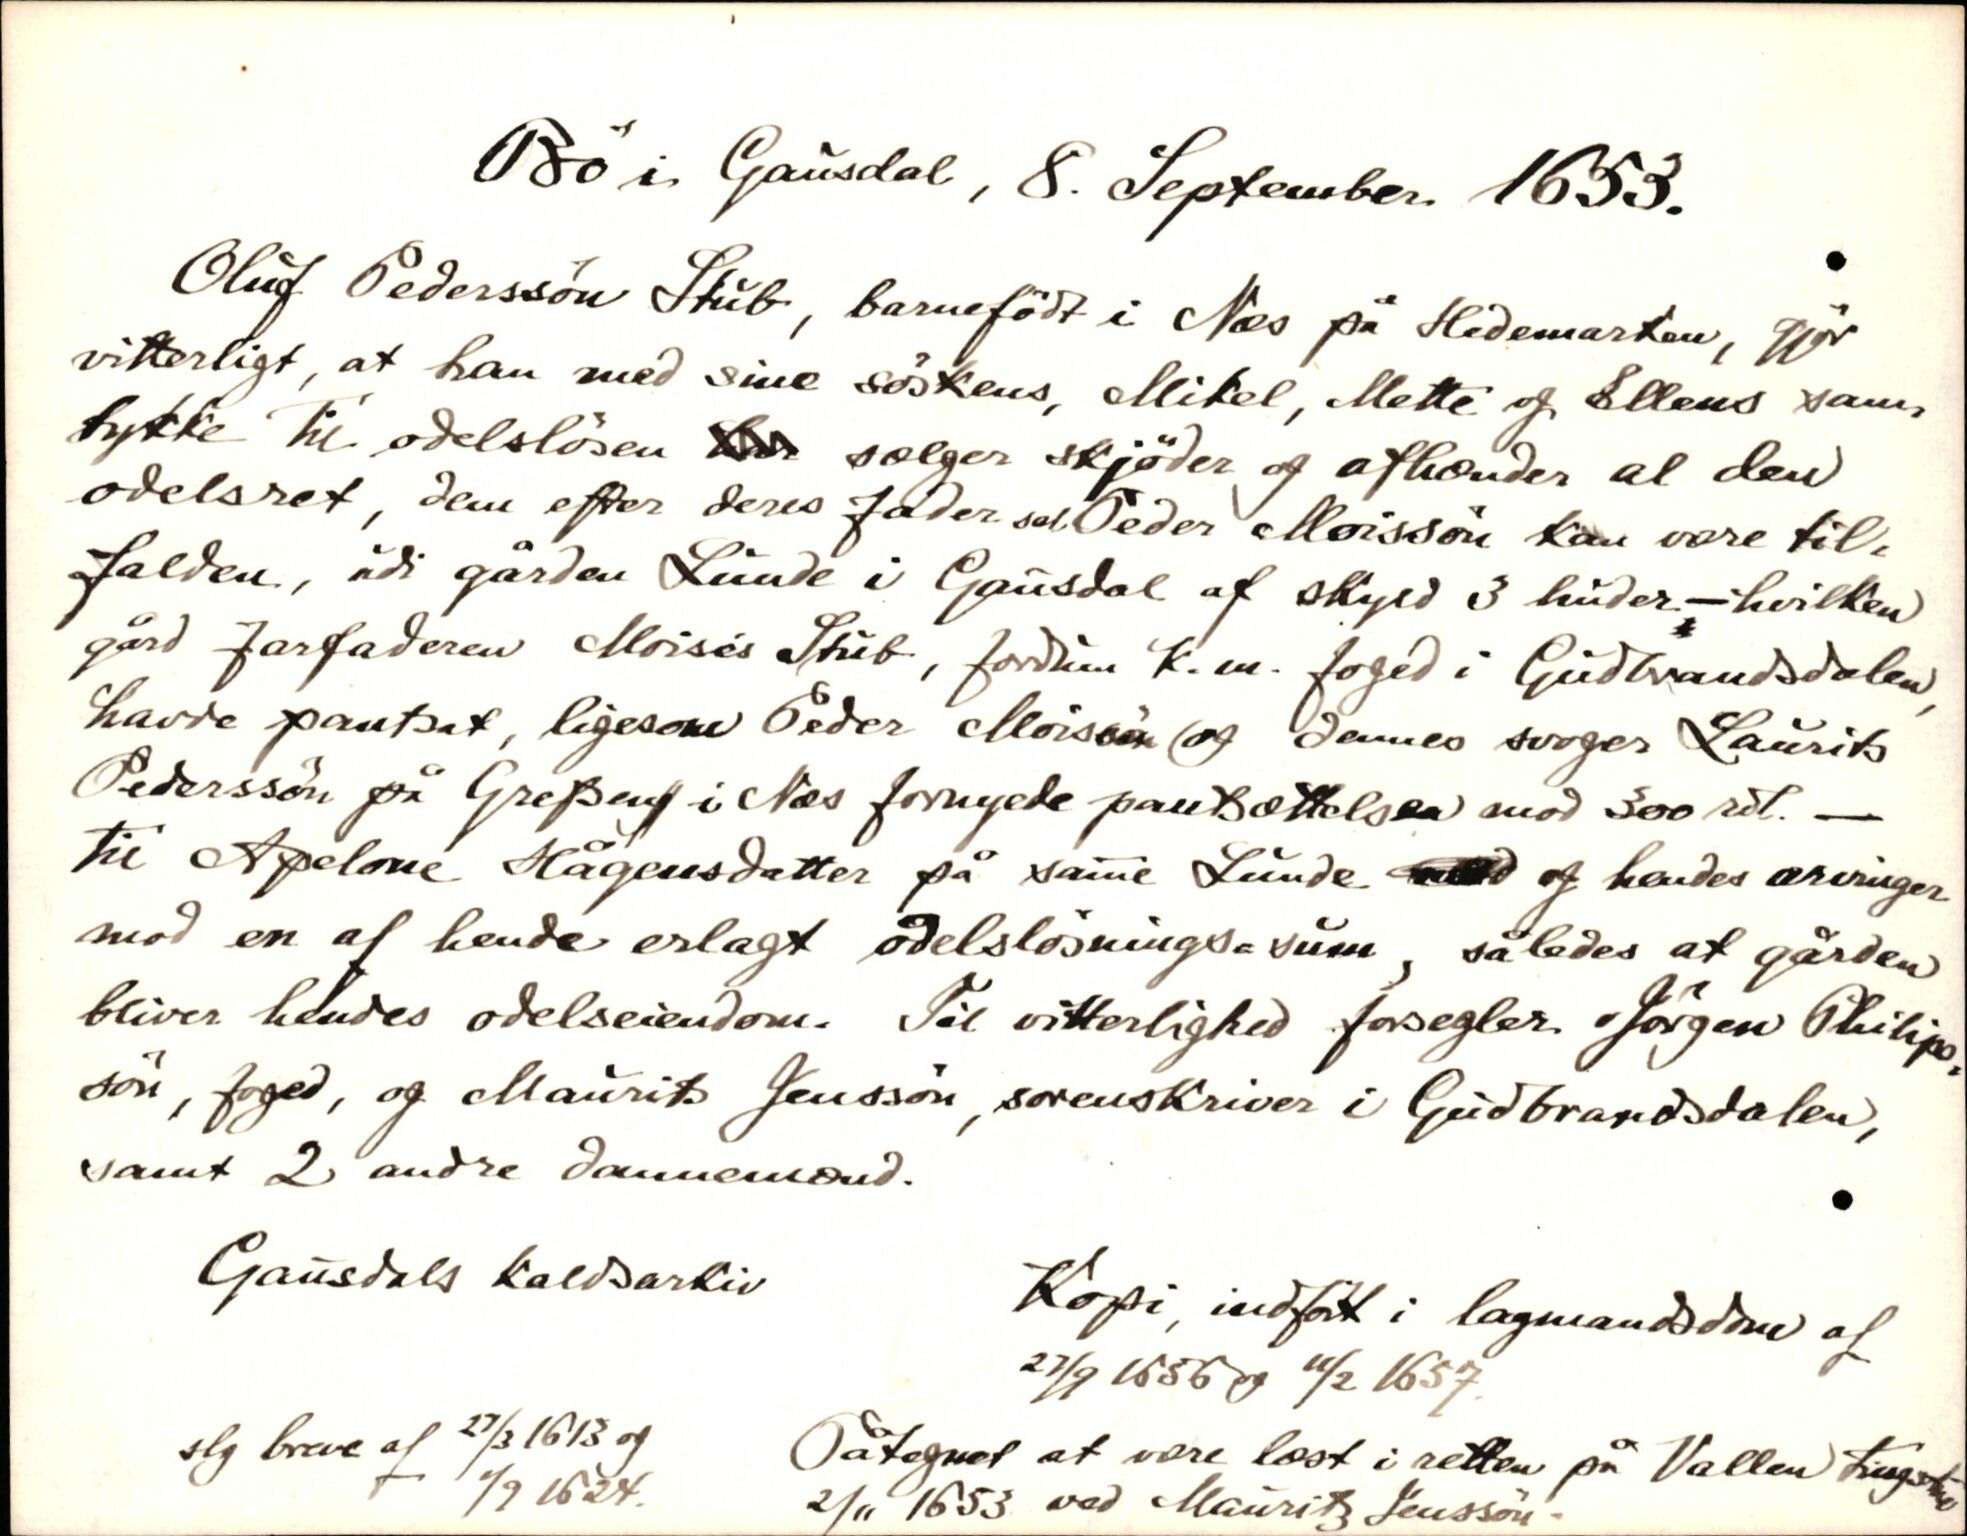 Bö i Gausdal, 8. September 1653.
Oluf Pederssön Stub, barnefödt i Næs på Hedemarken, gjör
vitterligt, at han med sine söskens, Mikel, Mette og Ellens sam-
tykke til odelslösen sælger skjöder og afhænder al den
odelsret, dem efter deres fader sal. Peder Moissön kan være til-
falden, udi gården Lunde i Gausdal af skyld 3 huder – hvilken
gård farfaderen Moises Stub, fordum k. m. foged i Gudbrandsdalen,
havde pantsat, ligesom Peder Moissön og dennes svoger Laurits
Pederssön på i Næs fornyede pantsættelsen mod 300 rdl. —
til Apelone Hågensdatter på same Lunde og hendes arvinger
mod en af hende erlagt odelslösnings-sum, således at gården
bliver hendes odelseiendom. Til vitterlighed forsegler Jörgen Philips-
sön, foged, og Maurits Jenssön, sorenskriver i Gudbrandsdalen,
samt 2 andre dannemænd.
Gausdals kaldsarkiv
Kopi, indfört i lagmandsdom af
27/9 1656 og 11/2 1657.
slg breve af 27/3 1613 og
1/9 1624.
Påtegnet at være læst i retten på Vallen tingstue
2/11 1653 ved Mauritz Jenssön.